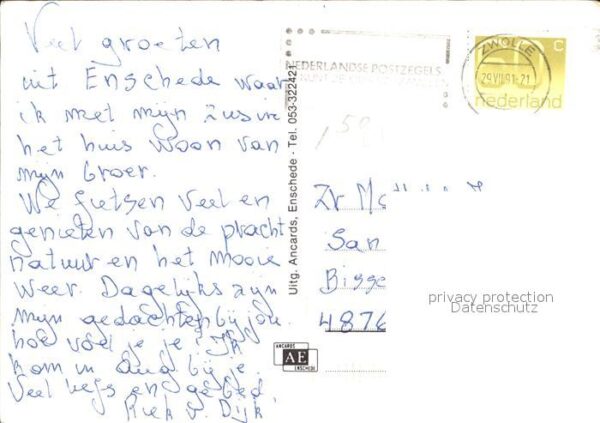 Veel groeten
uit Enschede waar
ik met mijn zus in
het huis woon van
mijn broer.
We fietsen veel en
genieten van de pracht
natuur en het mooie
weer. Dagelijks zijn
mijn gedachten bij jou.
hoe voel je je? Ik
kom in aug bij je.
Veel liefs en gebed
Riek v. Dijk
Uitg. Ancards, Enschede - Tel. 053-322421
NEDERLANDSE POSTZEGELS
ZWOLLE
29.VII.91.-21
C
nederland
Zr
San
Bisse
4876
privacy protection
Datenschutz
ANCARDS
AE
ENSCHEDE